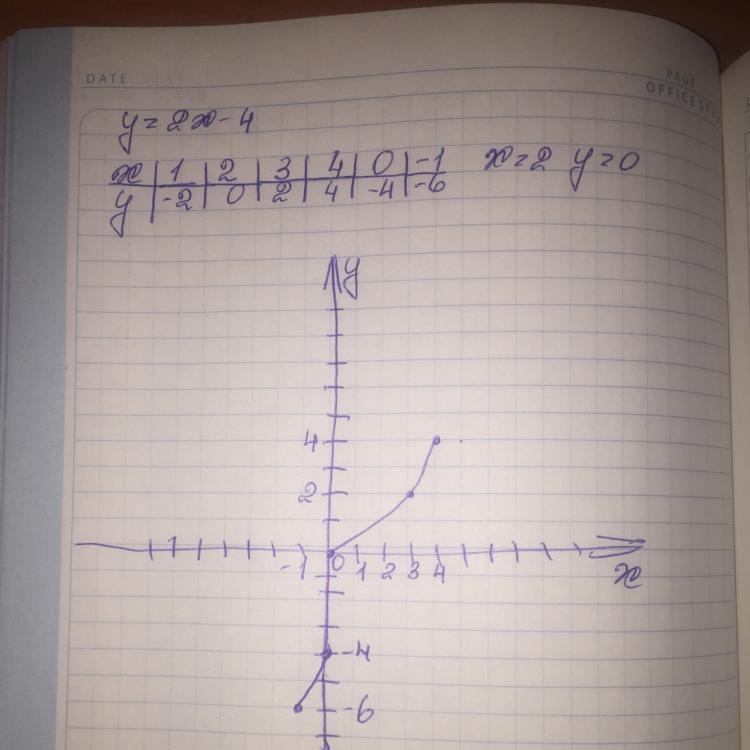 DATE
PAGE
OFFICE STY
y = 2x - 4
x | 1 | 2 | 3 | 4 | 0 | -1 x = 2 y = 0
y | -2 | 0 | 2 | 4 | -4 | -6
y
4
2
-1 0 1 2 3 4
x
-4
-6